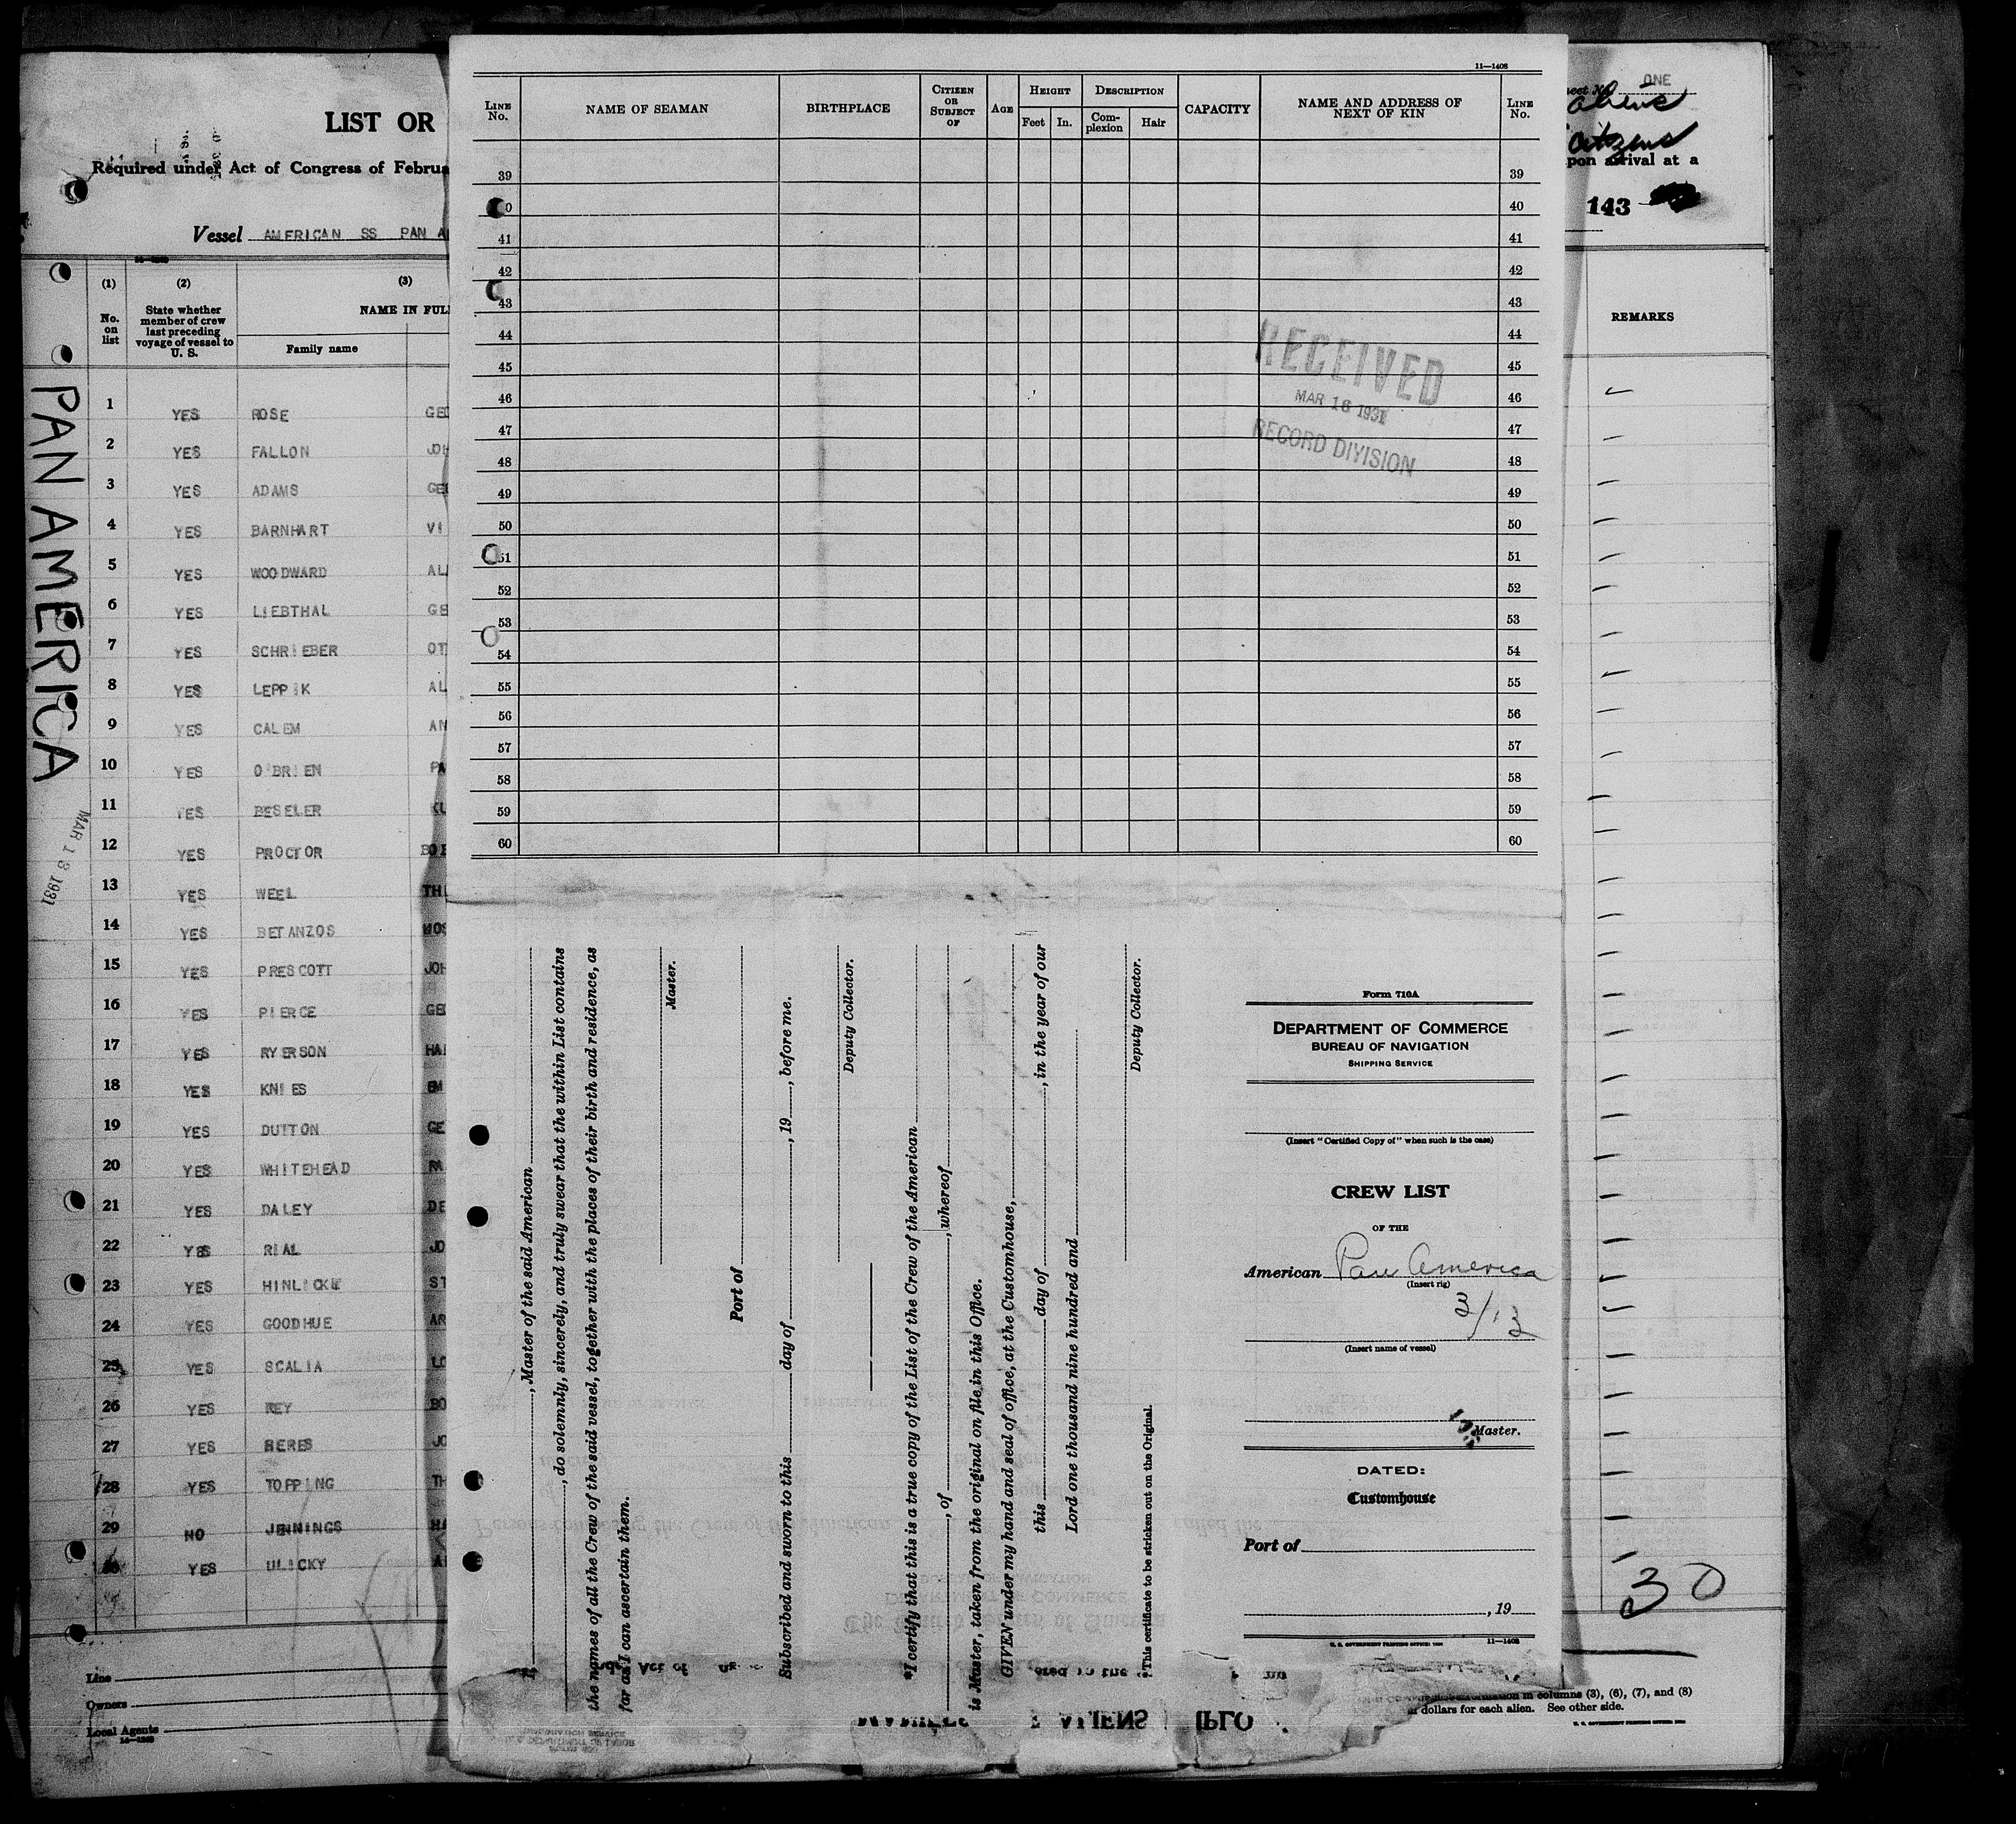 LIST OR
Required under Act of Congress of Februa
Vessel AMERICAN SS PAN A
(1) (2) (3)
No. on list
State whether member of crew last preceding voyage of vessel to U. S.
NAME IN FUL
Family name
1 YES ROSE GEO
2 YES FALLON JOH
3 YES ADAMS GEO
4 YES BARNHART VI
5 YES WOODWARD AL
6 YES LIEBTHAL GE
7 YES SCHRIEBER OT
8 YES LEPPIK AL
9 YES CALEM AN
10 YES O'BRIEN PA
11 YES BESELER KU
12 YES PROCTOR
13 YES WEEL TH
14 YES BETANZOS
15 YES PRESCOTT JOH
16 YES PIERCE GEO
17 YES RYERSON HA
18 YES KNIES EM
19 YES DUTTON GE
20 YES WHITEHEAD
21 YES DALEY DE
22 YES RIAL JO
23 YES HINLICKE ST
24 YES GOODHUE AR
25 YES SCALIA LO
26 YES REY BO
27 YES BERES JO
28 YES TOPPING TH
29 NO JENNINGS HA
YES ULICKY A
Line
Owners
Local Agents
PAN AMERICA
MAR 13 1931
11—1408
LINE No.
NAME OF SEAMAN
BIRTHPLACE
CITIZEN OR SUBJECT OF
AGE
HEIGHT
Feet In.
DESCRIPTION
Complexion Hair
CAPACITY
NAME AND ADDRESS OF NEXT OF KIN
LINE No.
39 39
0 40
41 41
42 42
43 43
44 44
45 45
46 46
47 47
48 48
49 49
50 50
51 51
52 52
53 53
54 54
55 55
56 56
57 57
58 58
59 59
60 60
RECEIVED
MAR 16 1931
RECORD DIVISION
, Master of the said American
, do solemnly, sincerely, and truly swear that the within List contains
the names of all the Crew of the said vessel, together with the places of their birth and residence, as
far as I can ascertain them.
Master.
Port of
Subscribed and sworn to this day of , 19 , before me.
Deputy Collector.
*I certify that this is a true copy of the List of the Crew of the American
, of , whereof
is Master, taken from the original on file in this Office.
GIVEN under my hand and seal of office, at the Customhouse,
this day of , in the year of our
Lord one thousand nine hundred and
Deputy Collector.
*This certificate to be stricken out on the Original.
Form 710A
DEPARTMENT OF COMMERCE
BUREAU OF NAVIGATION
SHIPPING SERVICE
(Insert "Certified Copy of" when such is the case)
CREW LIST
OF THE
American Pan America
(Insert rig)
3/13
(Insert name of vessel)
Master.
DATED:
Customhouse
Port of
, 19
U. S. GOVERNMENT PRINTING OFFICE 11—1408
ONE
Aliens
Citizens
pon arrival at a
143
REMARKS
30
in columns (3), (6), (7), and (8)
dollars for each alien. See other side.